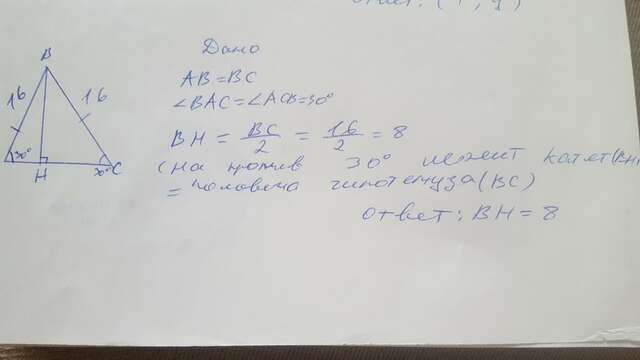 Дано
B
16
16
AB = BC
∠BAC = ∠ACB = 30°
BH = BC/2 = 16/2 = 8
(На против 30° лежит катет(BH)
= половина гипотенуза(BC)
30°
H
30°
C
Ответ: BH = 8